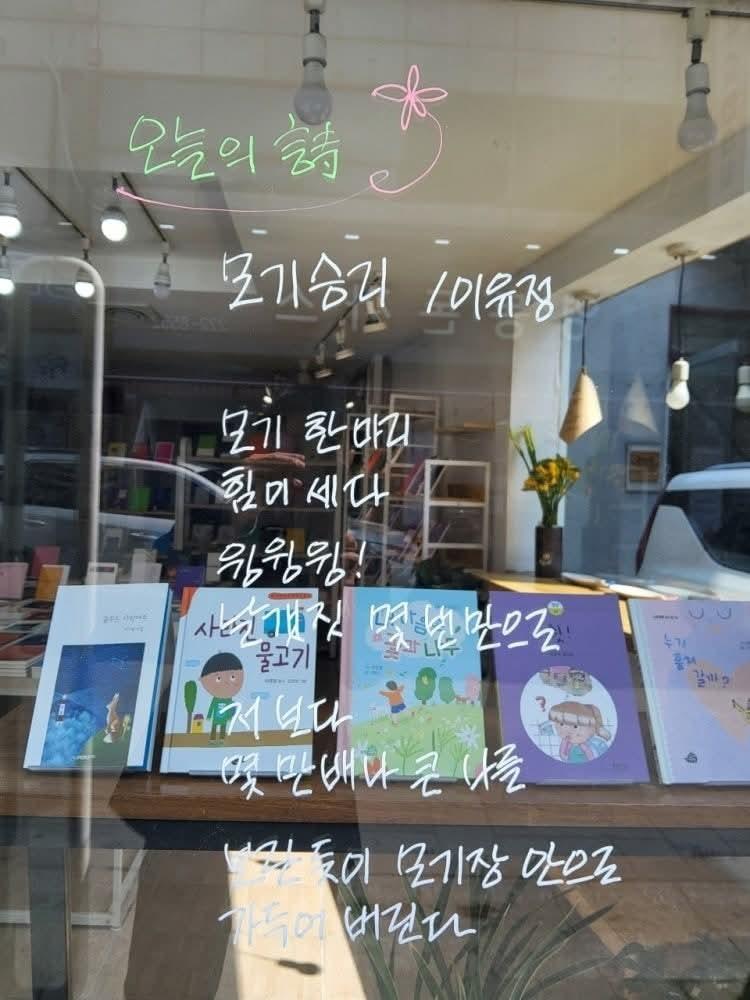 오늘의 詩
모기승리 /이유정
모기 한 마리
힘이 세다
윙윙윙!
날갯짓 몇 번만으로
저보다
몇 만배나 큰 나를
보란듯이 모기장 안으로
가두어 버린다
물고기
꽃과 나무
누가
훔쳐
갈까?